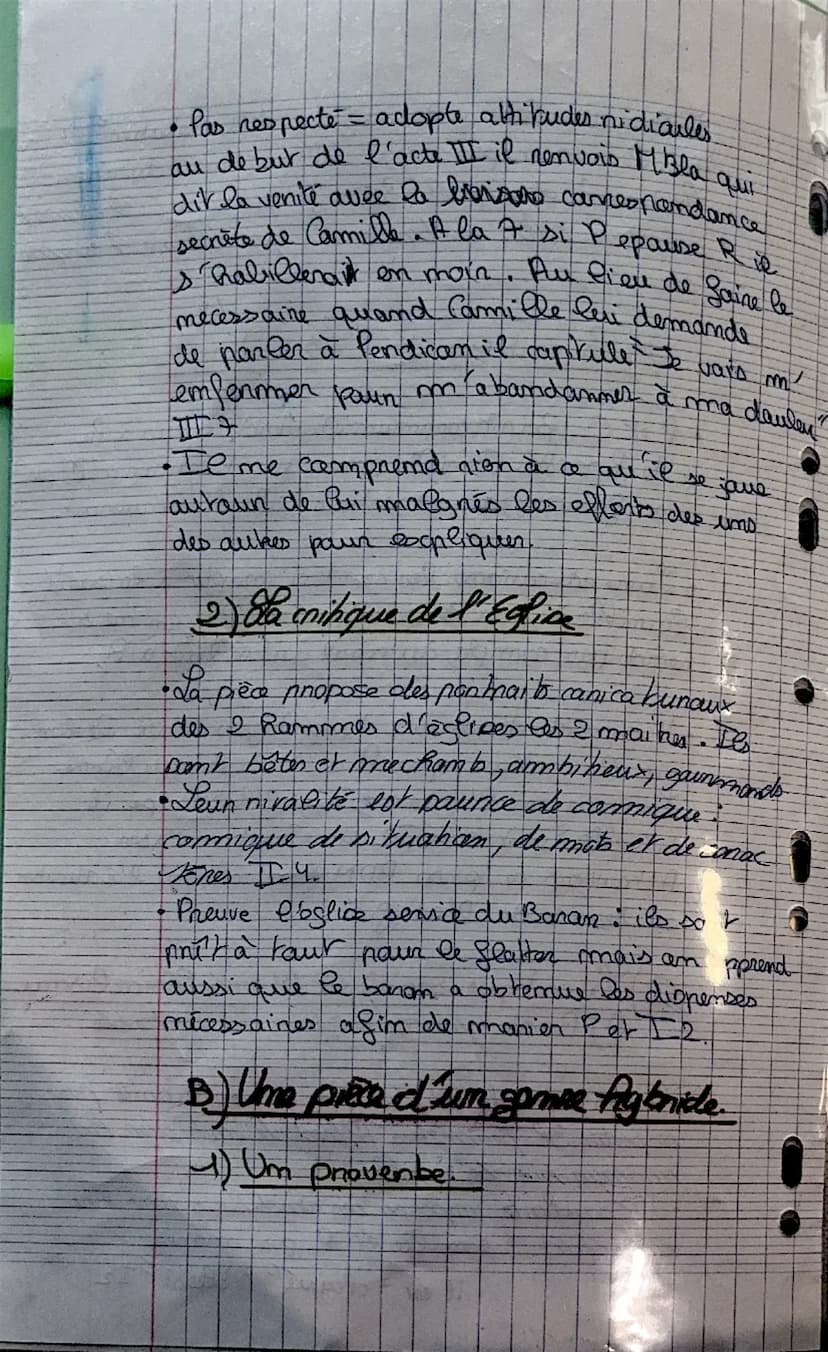 • Pas respecté = adopte attitudes ridicules
au debut de l'acte III il renvois M Bla qui
dit la verité avec la correspondance
secrète de Camille. A la 7 si P epouse R il
s'habillerait en noir. Au lieu de faire le
necessaire quand Camille lui demande
de parler à Perdican il capitule "Je vais m'
enfermer pour m'abandonner à ma douleur"
III 7
• Il ne comprend rien à ce qu'il se joue
autour de lui malgrés les efforts des uns
des autres pour expliquer.
2) La critique de l'Eglise
• La pièce propose des portraits caricaturaux
des 2 hommes d'églises les 2 maitres. Ils
sont bêtes et mechants, ambitieux, gourmands
• Leur rivalité est source de comique :
comique de situation, de mots et de carac
tères II 4.
• Preuve église service du Baron : ils so t
prêt à tout pour le flatter mais on pprend
aussi que le baron a obtenue les dispenses
nécessaires afin de marier P et I 2.
B) Une pièce d'un genre hybride.
1) Un proverbe.